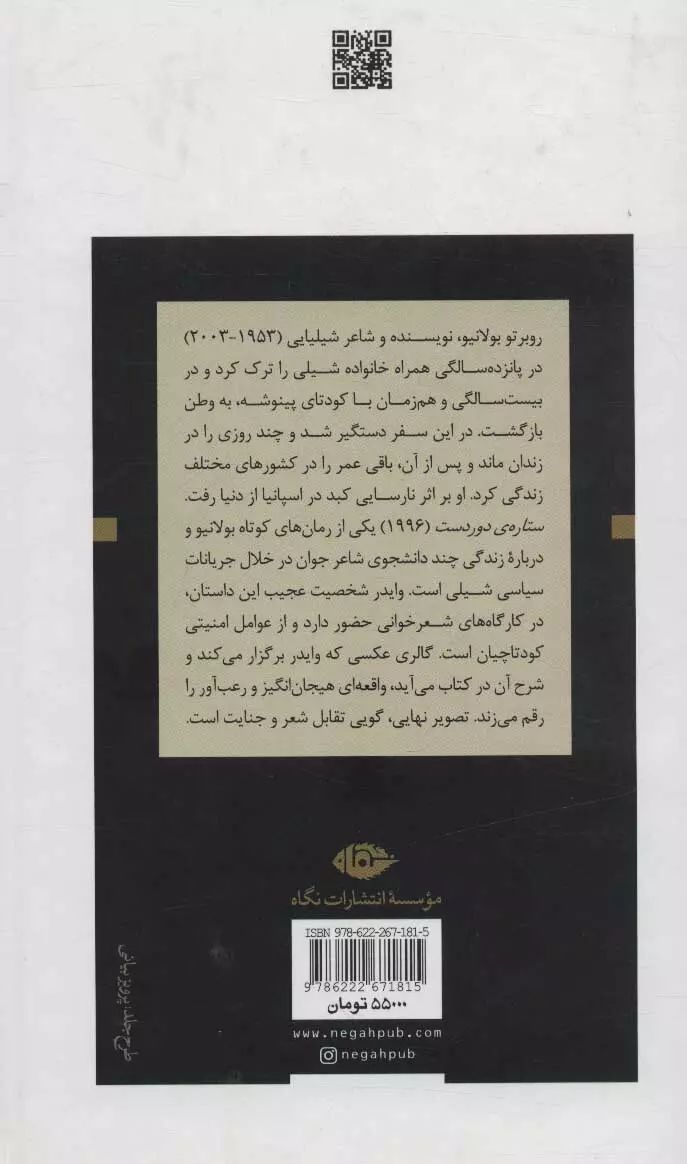 روبرتو بولانیو، نویسنده و شاعر شیلیایی (۱۹۵۳-۲۰۰۳)
در پانزده‌سالگی همراه خانواده شیلی را ترک کرد و در
بیست‌سالگی و هم‌زمان با کودتای پینوشه، به وطن
بازگشت. در این سفر دستگیر شد و چند روزی را در
زندان ماند و پس از آن، باقی عمر را در کشورهای مختلف
زندگی کرد. او بر اثر نارسایی کبد در اسپانیا از دنیا رفت.
ستاره‌ی دوردست (۱۹۹۶) یکی از رمان‌های کوتاه بولانیو و
دربارهٔ زندگی چند دانشجوی شاعر جوان در خلال جریانات
سیاسی شیلی است. وایدر شخصیت عجیب این داستان،
در کارگاه‌های شعرخوانی حضور دارد و از عوامل امنیتی
کودتاچیان است. گالری عکسی که وایدر برگزار می‌کند و
شرح آن در کتاب می‌آید، واقعه‌ای هیجان‌انگیز و رعب‌آور را
رقم می‌زند. تصویر نهایی، گویی تقابل شعر و جنایت است.
مؤسسهٔ انتشارات نگاه
ISBN 978-622-267-181-5
9 786222 671815
۵۵۰۰۰ تومان
www.negahpub.com
negahpub
طرح جلد: پرویز بیانی